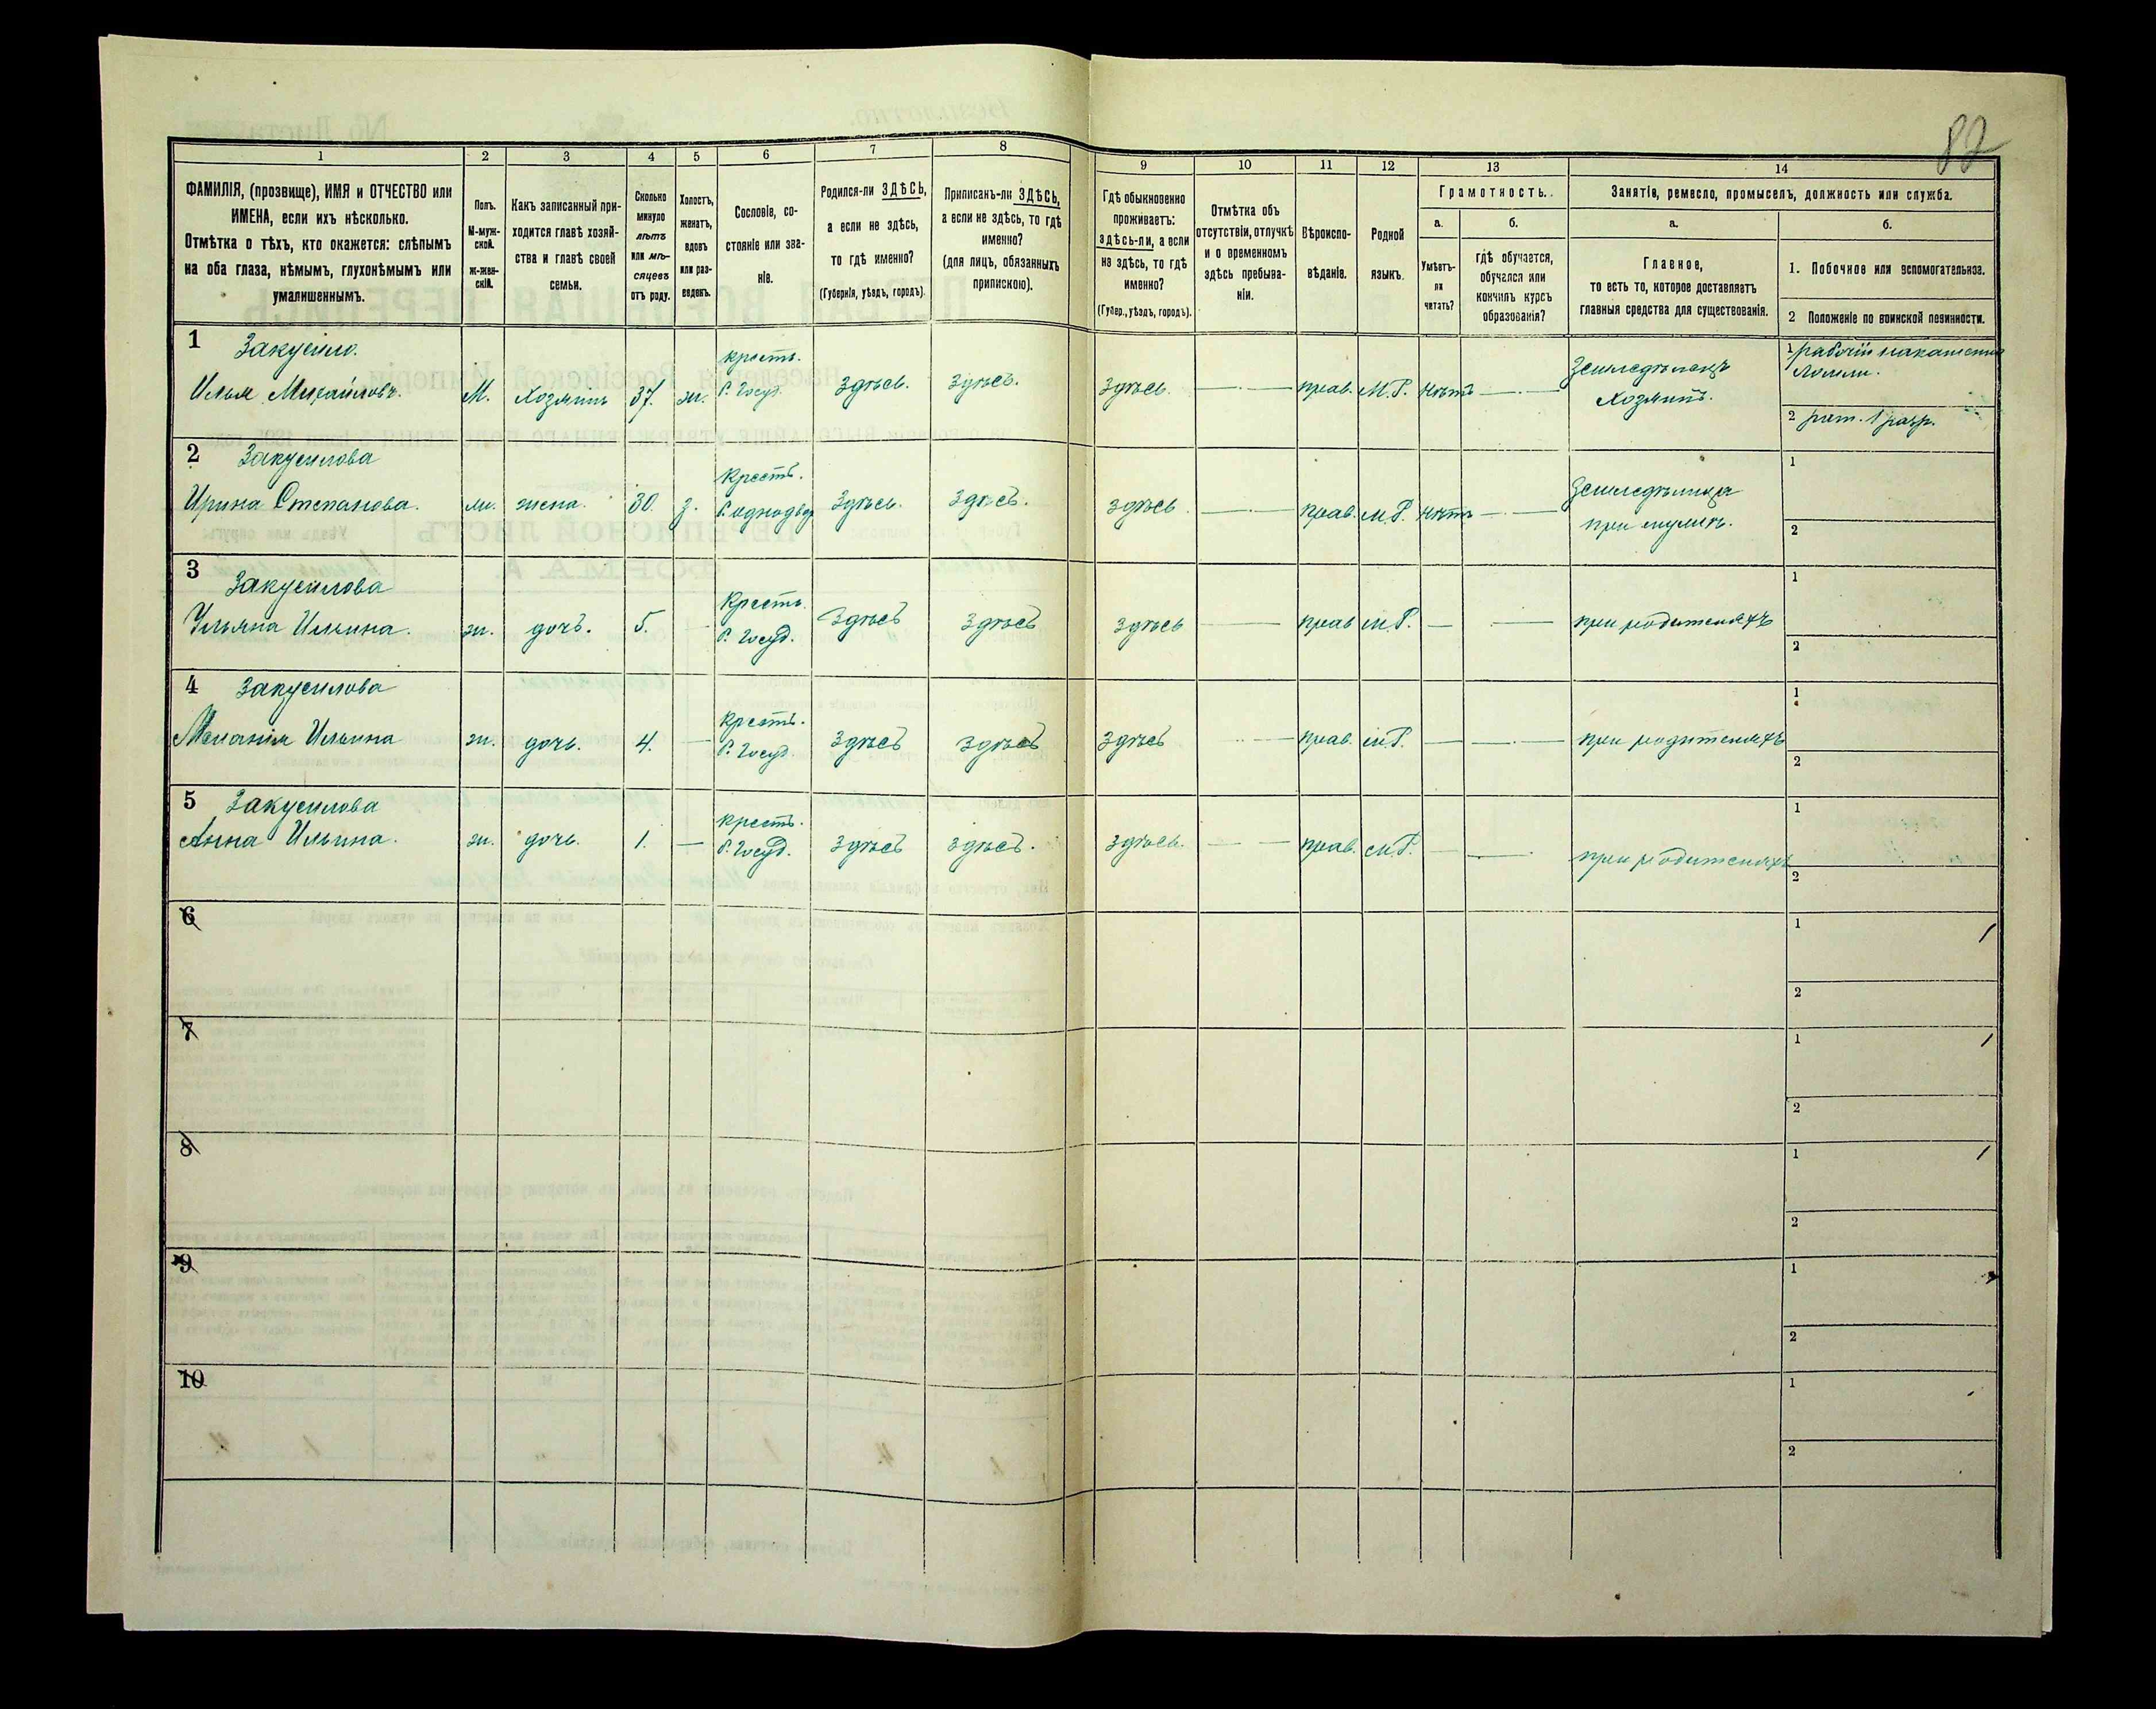 82
1 2 3 4 5 6 7 8 9 10 11 12 13 14
ФАМИЛІЯ, (прозвище), ИМЯ и ОТЧЕСТВО или
ИМЕНА, если ихъ нѣсколько.
Отмѣтка о тѣхъ, кто окажется: слѣпымъ
на оба глаза, нѣмымъ, глухонѣмымъ или
умалишеннымъ.
Полъ.
М-муж-
ской.
ж-жен-
скій.
Какъ записанный при-
ходится главѣ хозяй-
ства и главѣ своей
семьи.
Сколько
минуло
лѣтъ
или мѣ-
сяцевъ
отъ роду.
Холостъ,
женатъ,
вдовъ
или раз-
веденъ.
Сословіе, со-
стояніе или зва-
ніе.
Родился-ли ЗДѢСЬ,
а если не здѣсь,
то гдѣ именно?
(Губернія, уѣздъ, городъ).
Приписанъ-ли ЗДѢСЬ,
а если не здѣсь, то гдѣ
именно?
(для лицъ, обязанныхъ
припискою).
Гдѣ обыкновенно
проживаетъ:
здѣсь-ли, а если
не здѣсь, то гдѣ
именно?
(Губер., уѣздъ, городъ).
Отмѣтка объ
отсутствіи, отлучкѣ
и о временномъ
здѣсь пребыва-
ніи.
Вѣроиспо-
вѣданіе.
Родной
языкъ.
Грамотность.
а. б.
Умѣетъ-
ли
читать?
гдѣ обучается,
обучался или
кончилъ курсъ
образованія?
Занятіе, ремесло, промыселъ, должность или служба.
а. б.
Главное,
то есть то, которое доставляетъ
главныя средства для существованія.
1. Побочное или вспомогательное.
2 Положеніе по воинской повинности.
1 Закусило.
Илья Михайловъ. М. Хозяинъ 37. ж. крест. б. Госуд. Здѣсь. Здѣсь. Здѣсь. прав. М.Р. нѣтъ Земледѣлецъ
Хозяинъ.
1 рабочій
2 рат. 1 разр.
2 Закусилова
Ирина Степанова. ж. жена. 30. з. Крест. б. однодвор Здѣсь. Здѣсь. здѣсь прав. М.Р. нѣтъ Земледѣлица
при мужѣ.
1
2
3 Закусилова
Ульяна Ильина. ж. дочь. 5. Крест. б. Госуд. Здѣсь здѣсь здѣсь прав М.Р. — при родителяхъ
1
2
4 Закусилова
Меланія Ильина ж. дочь. 4. — Крест. б. Госуд. Здѣсь Здѣсь здѣсь прав. М.Р. — при родителяхъ
1
2
5 Закусилова
Анна Ильина. ж. дочь. 1. — крест. б. Госуд. здѣсь здѣсь. здѣсь. прав. М.Р. — при родителяхъ
1
2
6 1
2
7 1
2
8 1
2
9 1
2
10 1
2